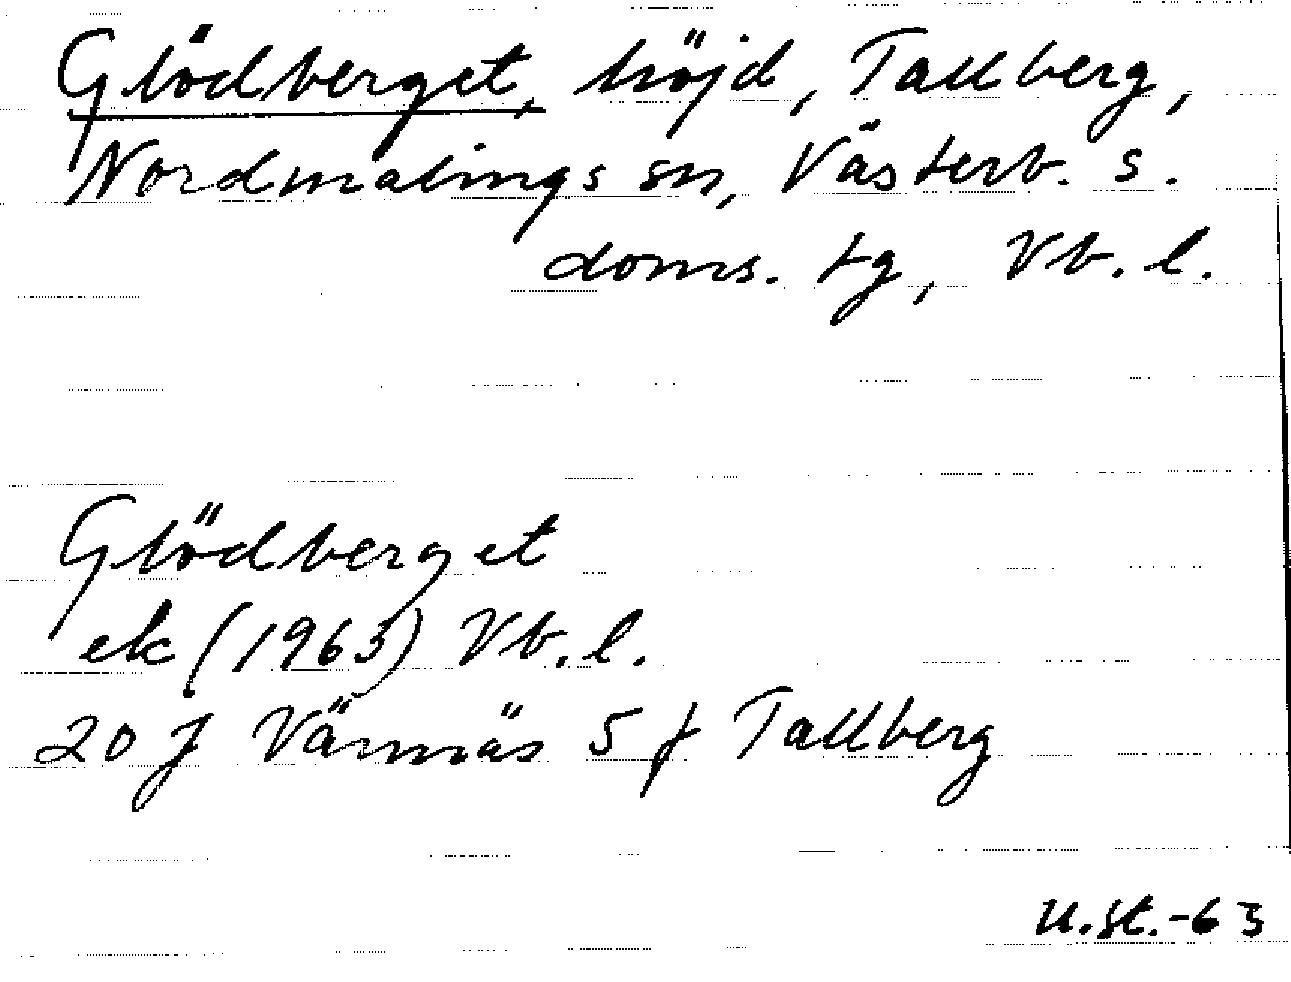 Glödberget, höjd, Tallberg,
Nordmalings sn, Västerb. s.
doms. tg, Vb. l.
Glödberget
ek (1963) Vb. l.
20 J Värnäs 5 f Tallberg
U.St.-63